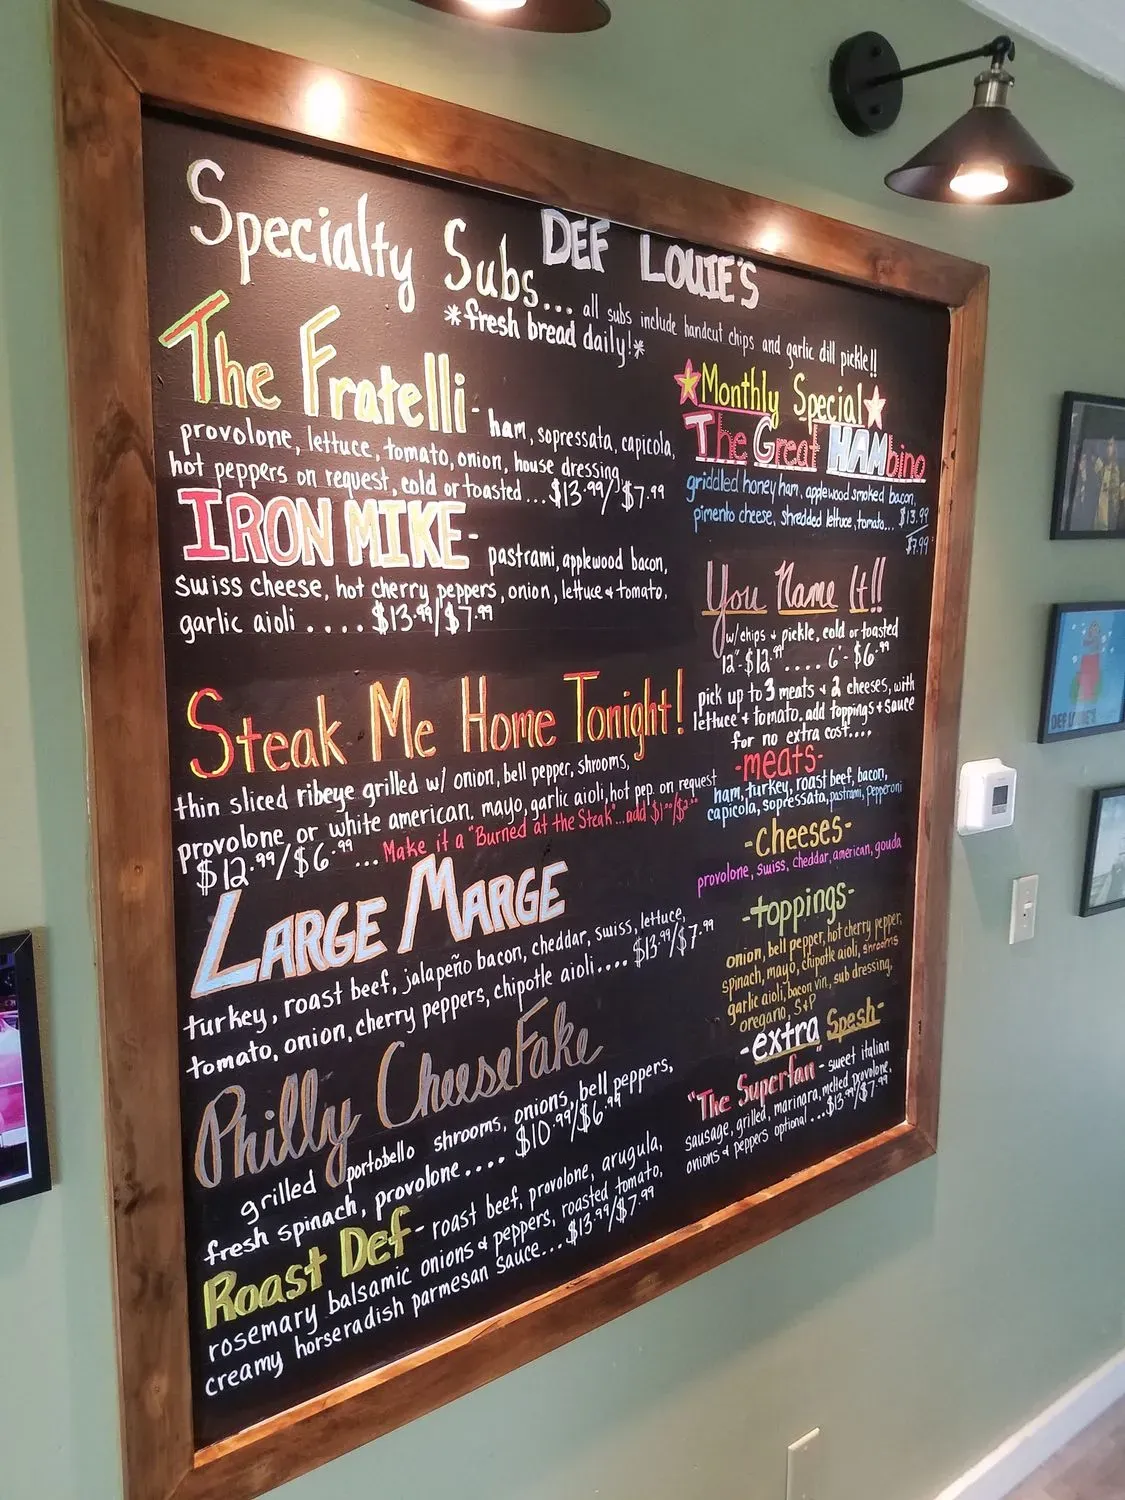 Specialty Subs... DEF LOUIE'S
all subs include handcut chips and garlic dill pickle!!
*fresh bread daily!*
The Fratelli - ham, sopressata, capicola,
provolone, lettuce, tomato, onion, house dressing,
hot peppers on request, cold or toasted... $13.99/$7.99
IRON MIKE - pastrami, applewood bacon,
swiss cheese, hot cherry peppers, onion, lettuce & tomato,
garlic aioli .... $13.99/$7.99
Steak Me Home Tonight!
thin sliced ribeye grilled w/ onion, bell pepper, shrooms,
provolone or white american. mayo, garlic aioli, hot pep. on request
$12.99/$6.99... Make it a "Burned at the Steak"...add $1.00/$2.00
LARGE MARGE
turkey, roast beef, jalapeño bacon, cheddar, swiss, lettuce,
tomato, onion, cherry peppers, chipotle aioli.... $13.99/$7.99
Philly CheeseFake
grilled portobello shrooms, onions, bell peppers,
fresh spinach, provolone.... $10.99/$6.99
Roast Def - roast beef, provolone, arugula,
rosemary balsamic onions & peppers, roasted tomato,
creamy horseradish parmesan sauce... $13.99/$7.99
Monthly Special
The Great HAMbino
griddled honey ham, applewood smoked bacon,
pimento cheese, shredded lettuce, tomato... $13.99
$7.99
You Name It!!
w/chips & pickle, cold or toasted
12"-$12.99.... 6"-$6.99
pick up to 3 meats & 2 cheeses, with
lettuce & tomato. add toppings & sauce
for no extra cost....
-meats-
ham, turkey, roast beef, bacon,
capicola, sopressata, pastrami, pepperoni
-cheeses-
provolone, swiss, cheddar, american, gouda
-toppings-
onion, bell pepper, hot cherry pepper,
spinach, mayo, chipotle aioli, shrooms
garlic aioli, bacon vin, sub dressing,
oregano, S+P
-extra Spesh-
"The Superfan" - sweet italian
sausage, grilled, marinara, melted provolone,
onions & peppers optional ... $13.99/$7.99
DEF LOUIE'S